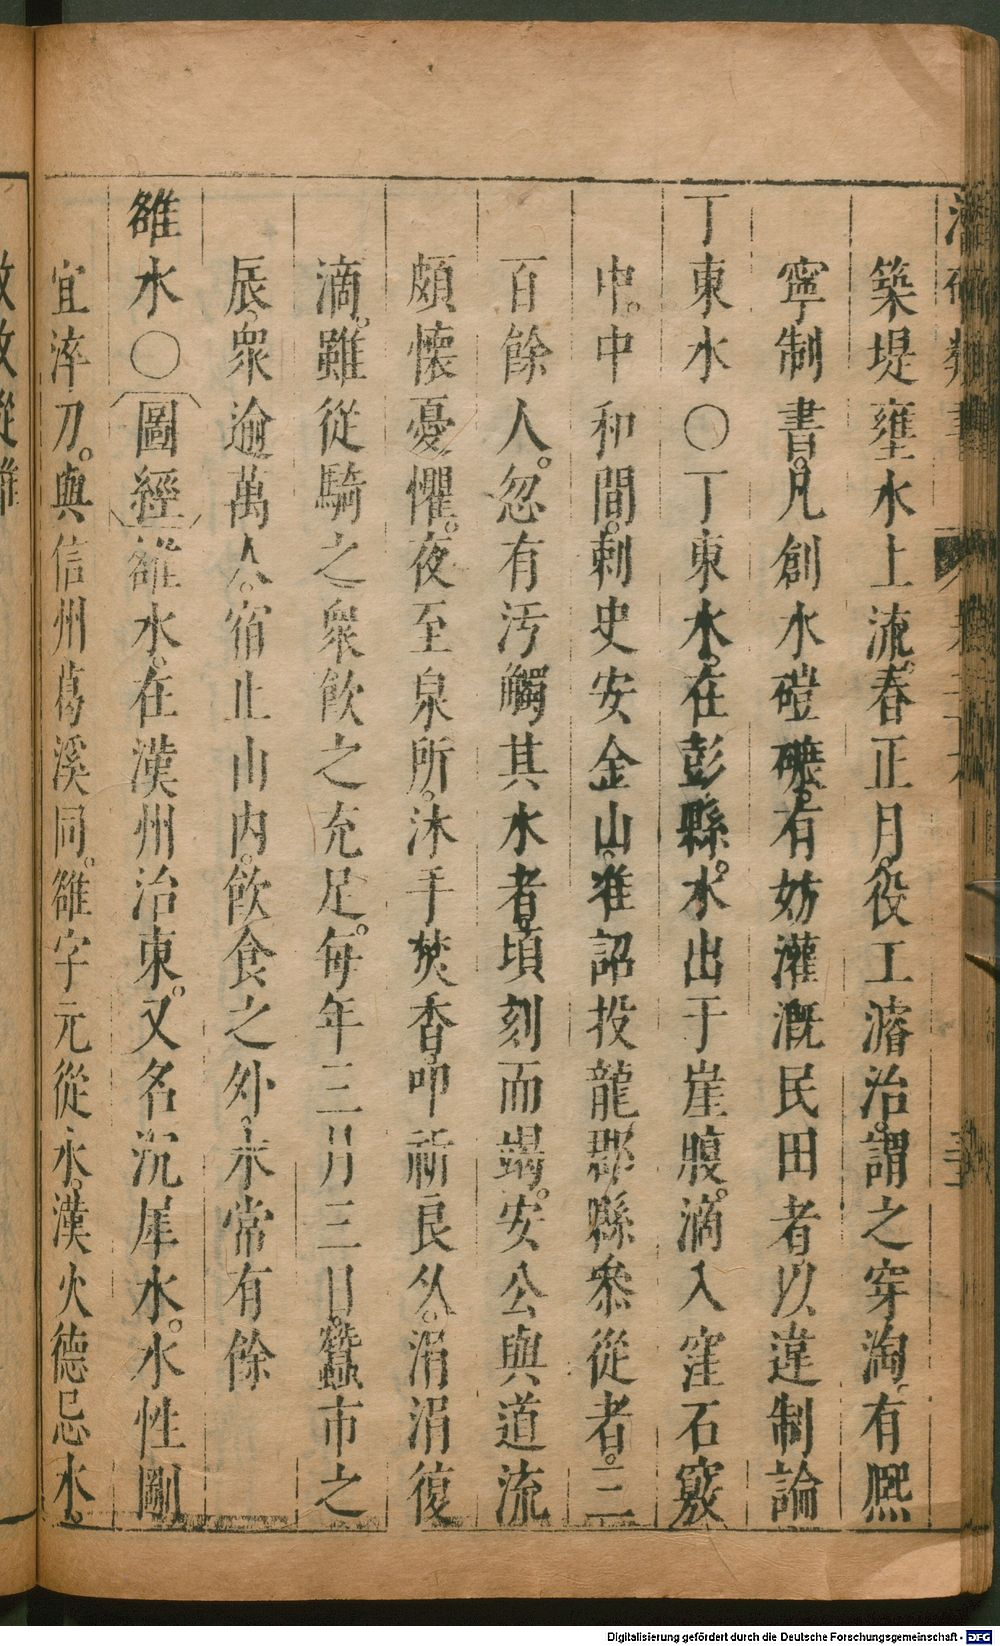 築堤壅水上流。春正月。役工濬治。謂之穿淘。有熈
寧制書。凡創水磑碾。有妨灌漑民田者。以違制論
丁東水〇丁東水。在彭縣。水出于崖腹。滴入窪石竅
中。中和間。刺史安金山。准詔投龍。郡縣叅從者。三
百餘人。忽有汚觸其水者。頃刻而竭。安公與道流
頗懷憂懼。夜至泉所。沐手焚香。叩祈良久。涓涓復
滴。雖從騎之衆。飮之充足。每年三月三日。蠶市之
辰。衆逾萬人。宿止山内。飮食之外。未常有餘
雒水〇圖經雒水。在漢州治東。又名沉犀水。水性剛
宜淬刀。與信州葛溪同。雒字元從水。漢火德忌水。
Digitalisierung gefördert durch die Deutsche Forschungsgemeinschaft - DFG